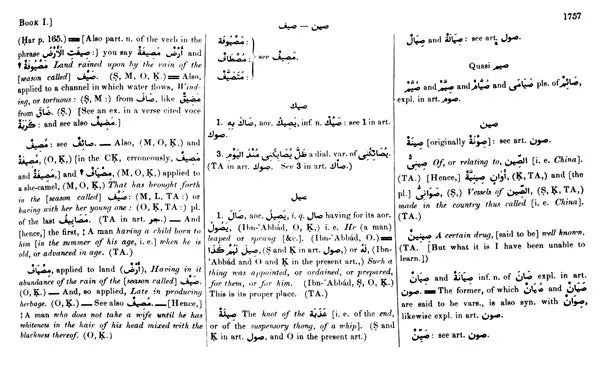 BOOK I.]
صين — صيف
1757
(Ḥar p. 165.) ═ [Also part. n. of the verb in the
phrase صِيفَتِ الأَرْضُ :] you say أَرْضٌ مَصِيفَةٌ and
مَصْيُوفَةٌ ↑ Land rained upon by the rain of the
[season called] صَيْف. (Ṣ, M, O, Ḳ.) ═ Also,
applied to a channel in which water flows, Wind-
ing, or tortuous: (Ṣ, M :) from صَافَ, like مَضِيق
from ضَاقَ. (Ṣ.) [See an ex. in a verse cited voce
كَرَبَةٌ : and see also مَضِيفٌ.]
مُصِيفٌ : see صَائِفٌ. — Also, (M,) and
مُصِيفَةٌ, (O, Ḳ,) [in the CḲ, erroneously, مَصِيف
and مَصِيفَة,] and مِصْيَافٌ ↑, (M, O, Ḳ,) applied to
a she-camel, (M, O, Ḳ,) That has brought forth
in the [season called] صَيْف : (M, L, TA :) or
having with her her young one : (O, Ḳ, TA :) pl.
of the last مَصَايِيفُ. (TA in art. جر.) — And
[hence,] the first, ‡ A man having a child born to
him [in the summer of his age, i. e.] when he is
old, or advanced in age. (TA.)
مِصْيَافٌ, applied to land (أَرْض), Having in it
abundance of the rain of the [season called] صَيْف.
(O, Ḳ.) — And, so applied, Late in producing
herbage. (O, Ḳ.) — See also مُصِيفٌ. — [Hence,]
‡ A man who does not take a wife until he has
whiteness in the hair of his head mixed with the
blackness thereof. (O, Ḳ.)
مَصْيُوفَةٌ :
مُصْطَافٌ : see مَصِيفٌ.
مُتَصَيَّفٌ :
صيك
1. صَاكَ بِهِ, aor. يَصِيكُ, inf. n. صَيْكٌ : see 1 in art.
صوك.
3. ظَلَّ يُصَايِكُنِى مُنْذُ الْيَوْمِ a dial. var. of يُصَائِكُنِى.
(TA in art. صوك. See 3 in art. صأك.)
صيل
1. صَالَ, aor. يَصِيلُ, i. q. صَالَ having for its aor.
يَصُولُ, (Ibn-'Abbád, O, Ḳ,) i. e. He (a man)
leaped or sprang [&c.]. (Ibn-'Abbád, O.) ═
صِيلَ لَهُمْ كَذَا, (Ṣ and Ḳ in art. صول,) or لَهُ, (Ibn-
'Abbád and O and Ḳ in the present art.,) Such a
thing was appointed, or ordained, or prepared,
for them, or for him. (Ibn-'Abbád, Ṣ, O, Ḳ.)
This is its proper place. (TA.)
صِيلَةٌ The knot of the عَذَبَة [i. e. of the end,
or of the suspensory thong, of a whip]. (Ṣ and
Ḳ in art. صول, and O in the present art.)
صِيَالٌ and صِيَالَةٌ : see art. صول.
Quasi صيم
صُيَّمٌ and صِيَّمٌ and صُيَّامٌ and صِيَامٌ pls. of صَائِمٌ,
expl. in art. صوم.
صين
صِينَةٌ [originally صِوْنَةٌ] : see art. صون.
صِينِىٌّ Of, or relating to, الصِّين [i. e. China].
(TA.) [Hence,] أَوَانٍ صِينِيَّةٌ, (Ḳ, TA,) and [the
pl.] صَوَانِىُّ, (Ṣ,) Vessels of الصِّين, (Ṣ, Ḳ, TA,)
made in the country thus called [i. e. China].
(TA.)
A certain drug, [said to be] well known.
(TA. [But what it is I have been unable to
learn.])
صِيَانٌ and صِيَانَةٌ inf. n. of صَانَ expl. in art.
صون. ═ The former, of which صُيَانٌ and صَيَانٌ
are said to be vars., is also syn. with صِوَانٌ,
likewise expl. in art. صون.
صَيِّنٌ : see art. صون.